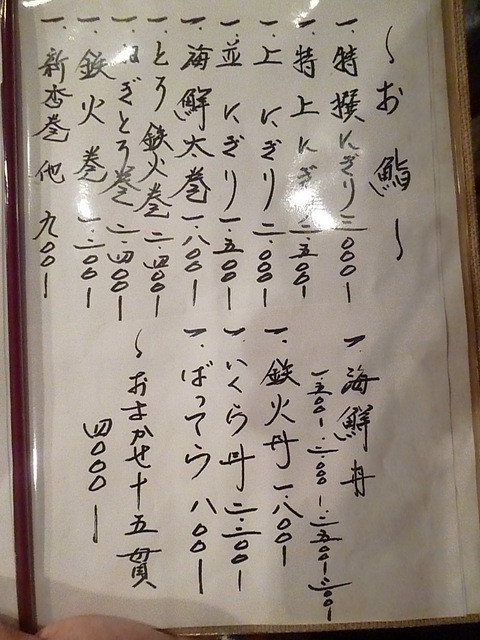 ～お鮨～
一、特撰にぎり 三、〇〇〇ー
一、特上にぎり 二、五〇〇ー
一、上にぎり 二、〇〇〇ー
一、並にぎり 一、五〇〇ー
一、海鮮太巻 一、八〇〇ー
一、とろ鉄火巻 二、四〇〇ー
一、ねぎとろ巻 二、四〇〇ー
一、鉄火巻 一、二〇〇ー
一、新香巻 他 九〇〇ー
一、海鮮丼
一、五〇〇ー 二、〇〇〇ー 二、五〇〇ー
一、鉄火丼 一、八〇〇ー
一、いくら丼 二、三〇〇ー
一、ばってら 八〇〇ー
～おまかせ十五貫
四〇〇〇ー